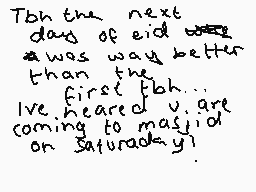 Tbh the next
day of eid
was way better
than the
first tbh...
Ive heared u are
coming to masjid
on saturaday?